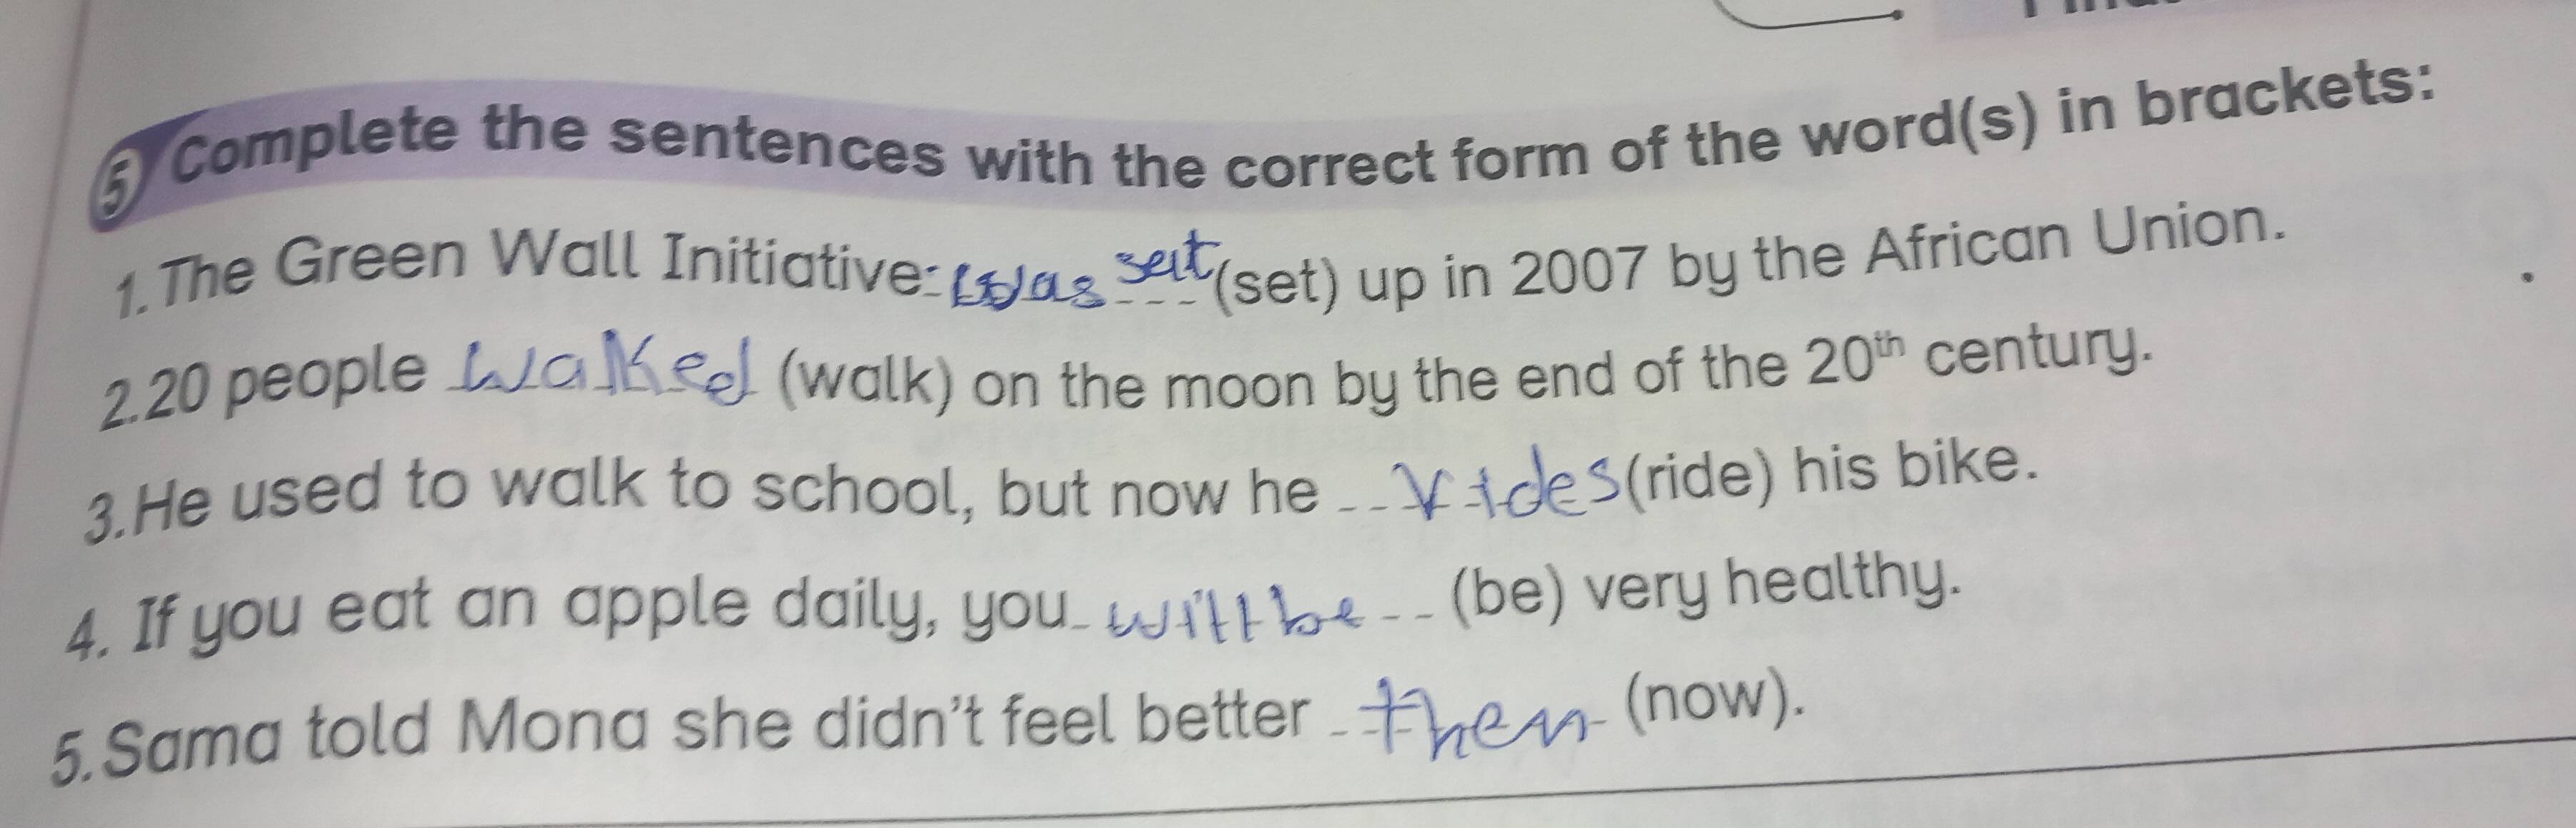 5 Complete the sentences with the correct form of the word(s) in brackets:
1. The Green Wall Initiative: was set (set) up in 2007 by the African Union.
2. 20 people walked (walk) on the moon by the end of the 20th century.
3. He used to walk to school, but now he rides (ride) his bike.
4. If you eat an apple daily, you will be (be) very healthy.
5. Sama told Mona she didn't feel better then (now).